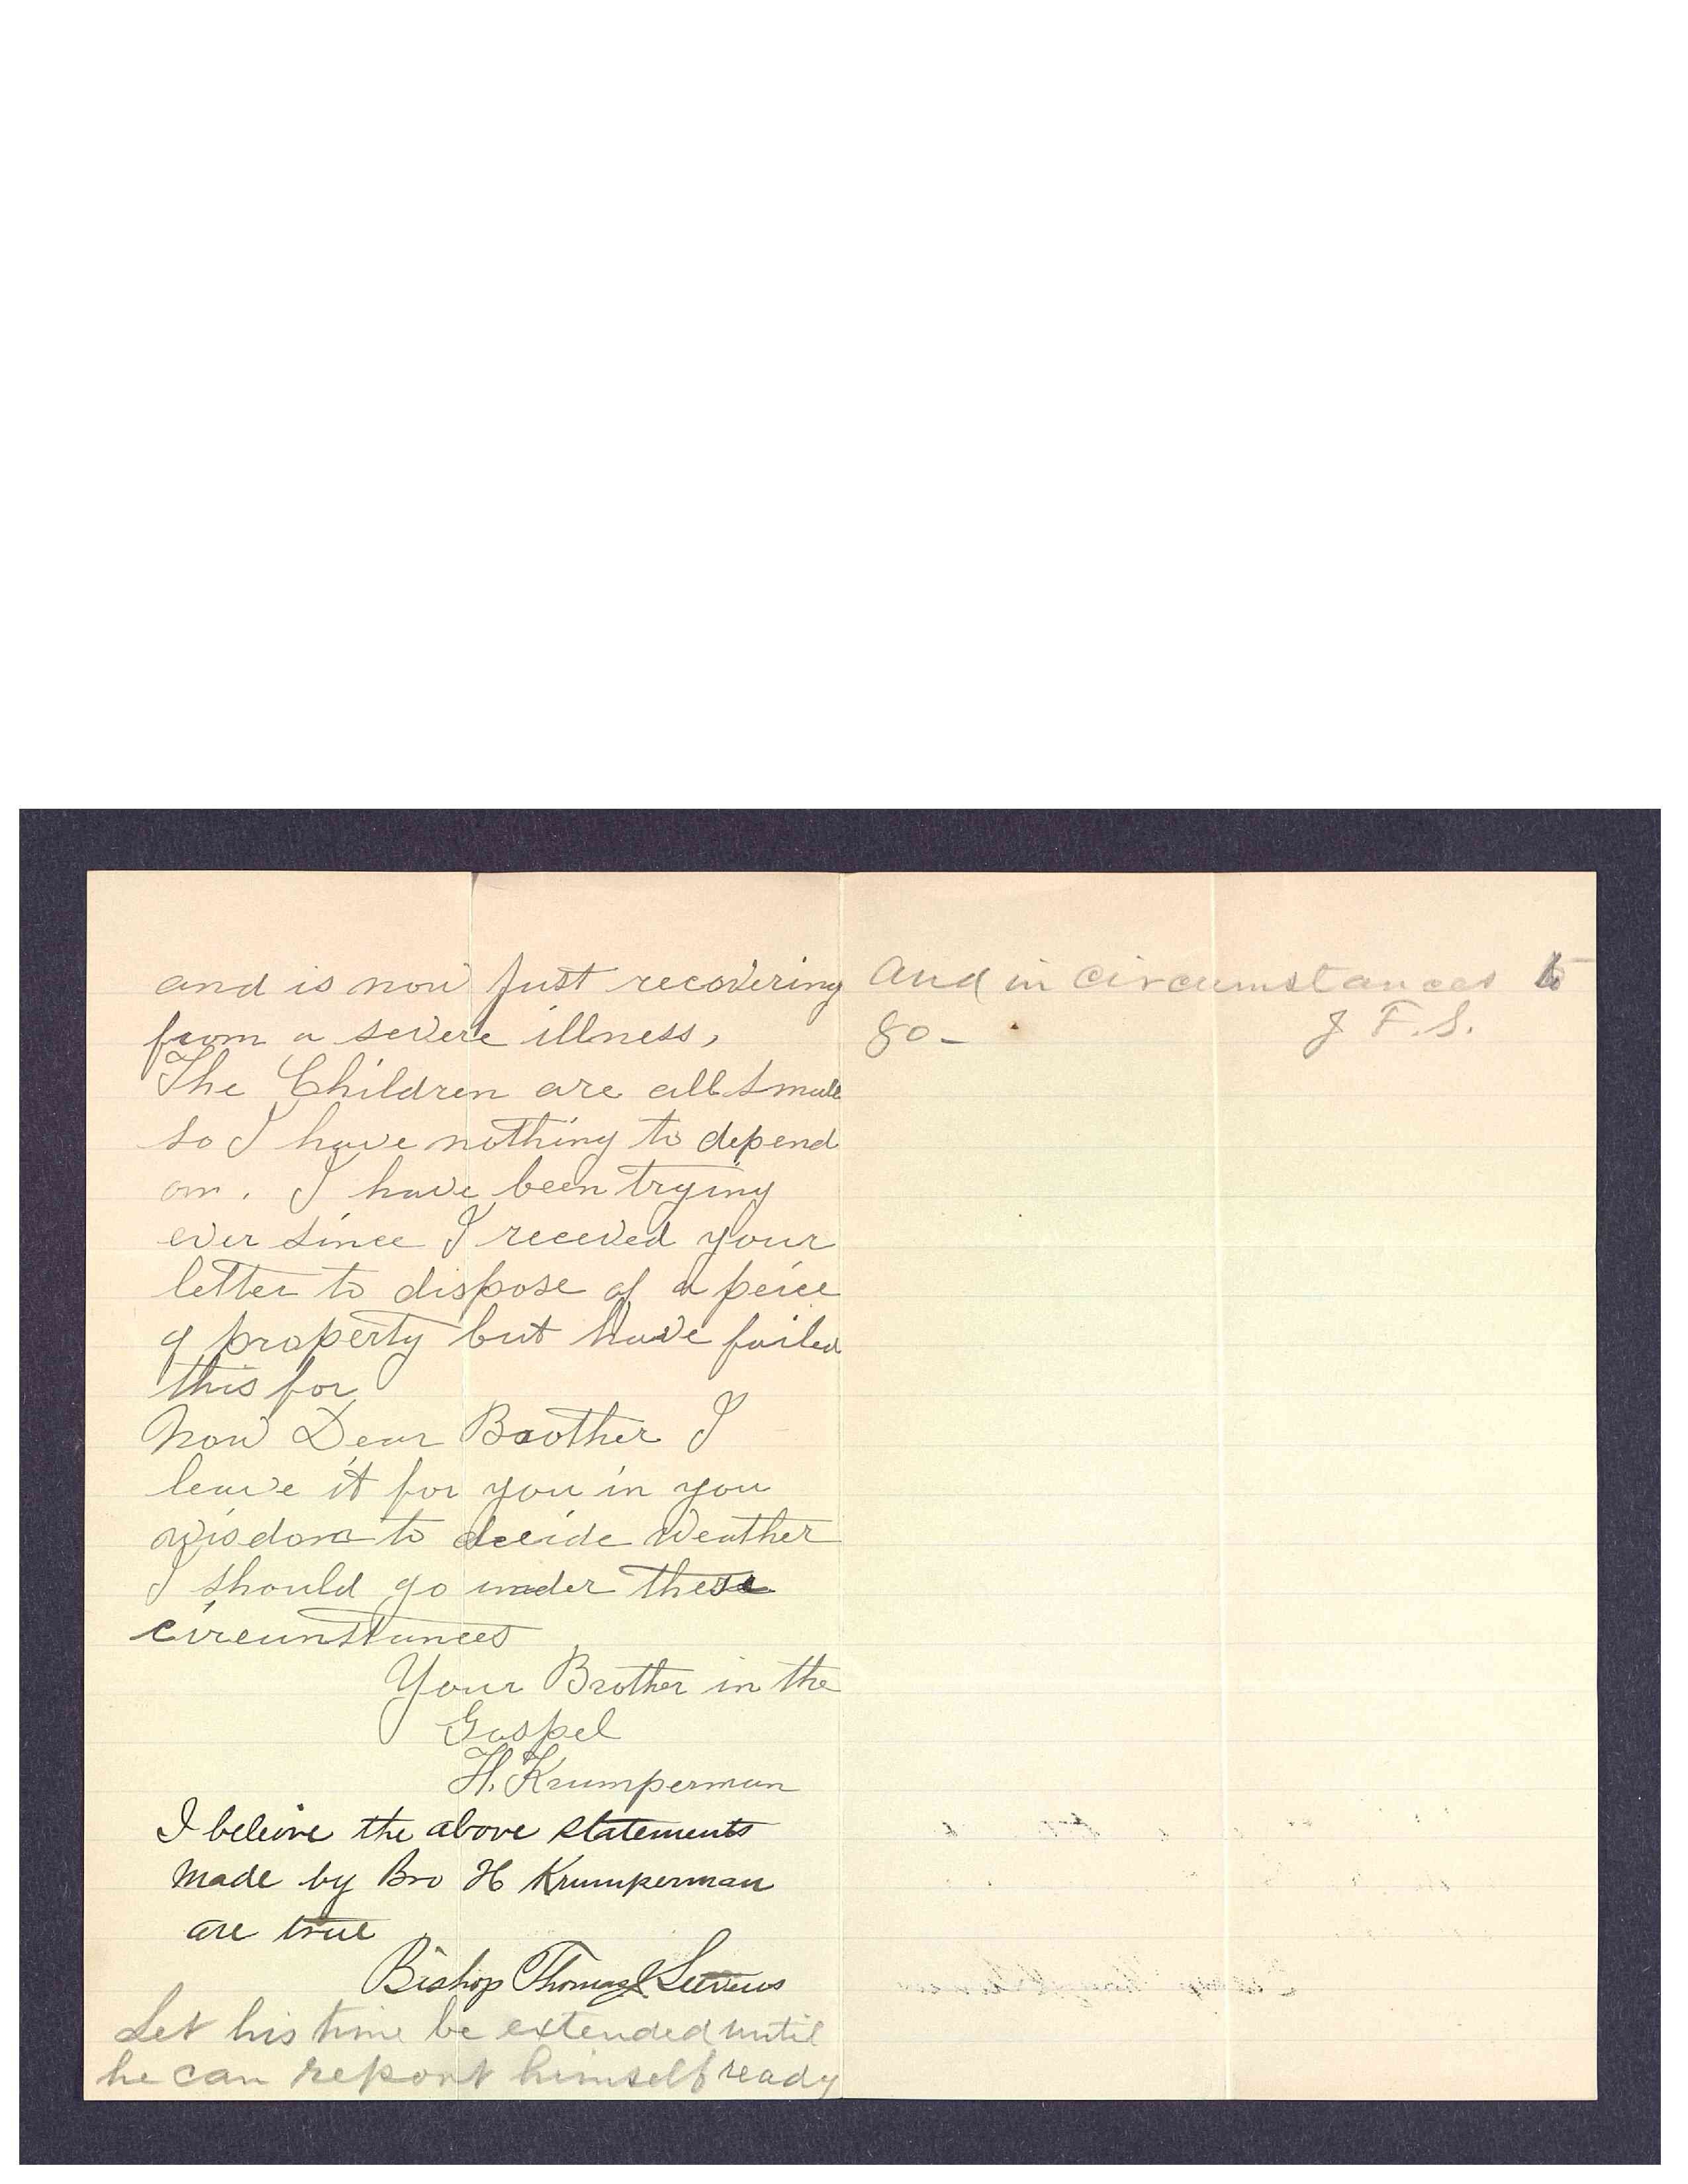 and is now Just recovering
from a severe illness,
The Children are all small
so I have nothing to depend
on. I have been trying
ever since I receved your
letter to dispose of a peice
of property but have failed
this for
Now Dear Brother I
leave it for you in you
wisdom to decide weather
I should go under these
circumstances
Your Brother in the
Gospel
H. Krumperman
I beleive the above statements
made by Bro H Krumperman
are true
Bishop Thomas
Let his time be extended until
he can report himself ready
and in circumstances to
go— J F. S.